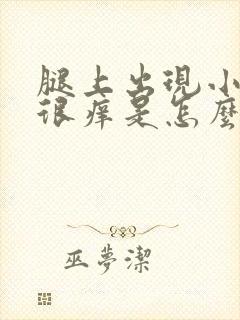 腿上出現小
很痒是怎麼
巫夢潔